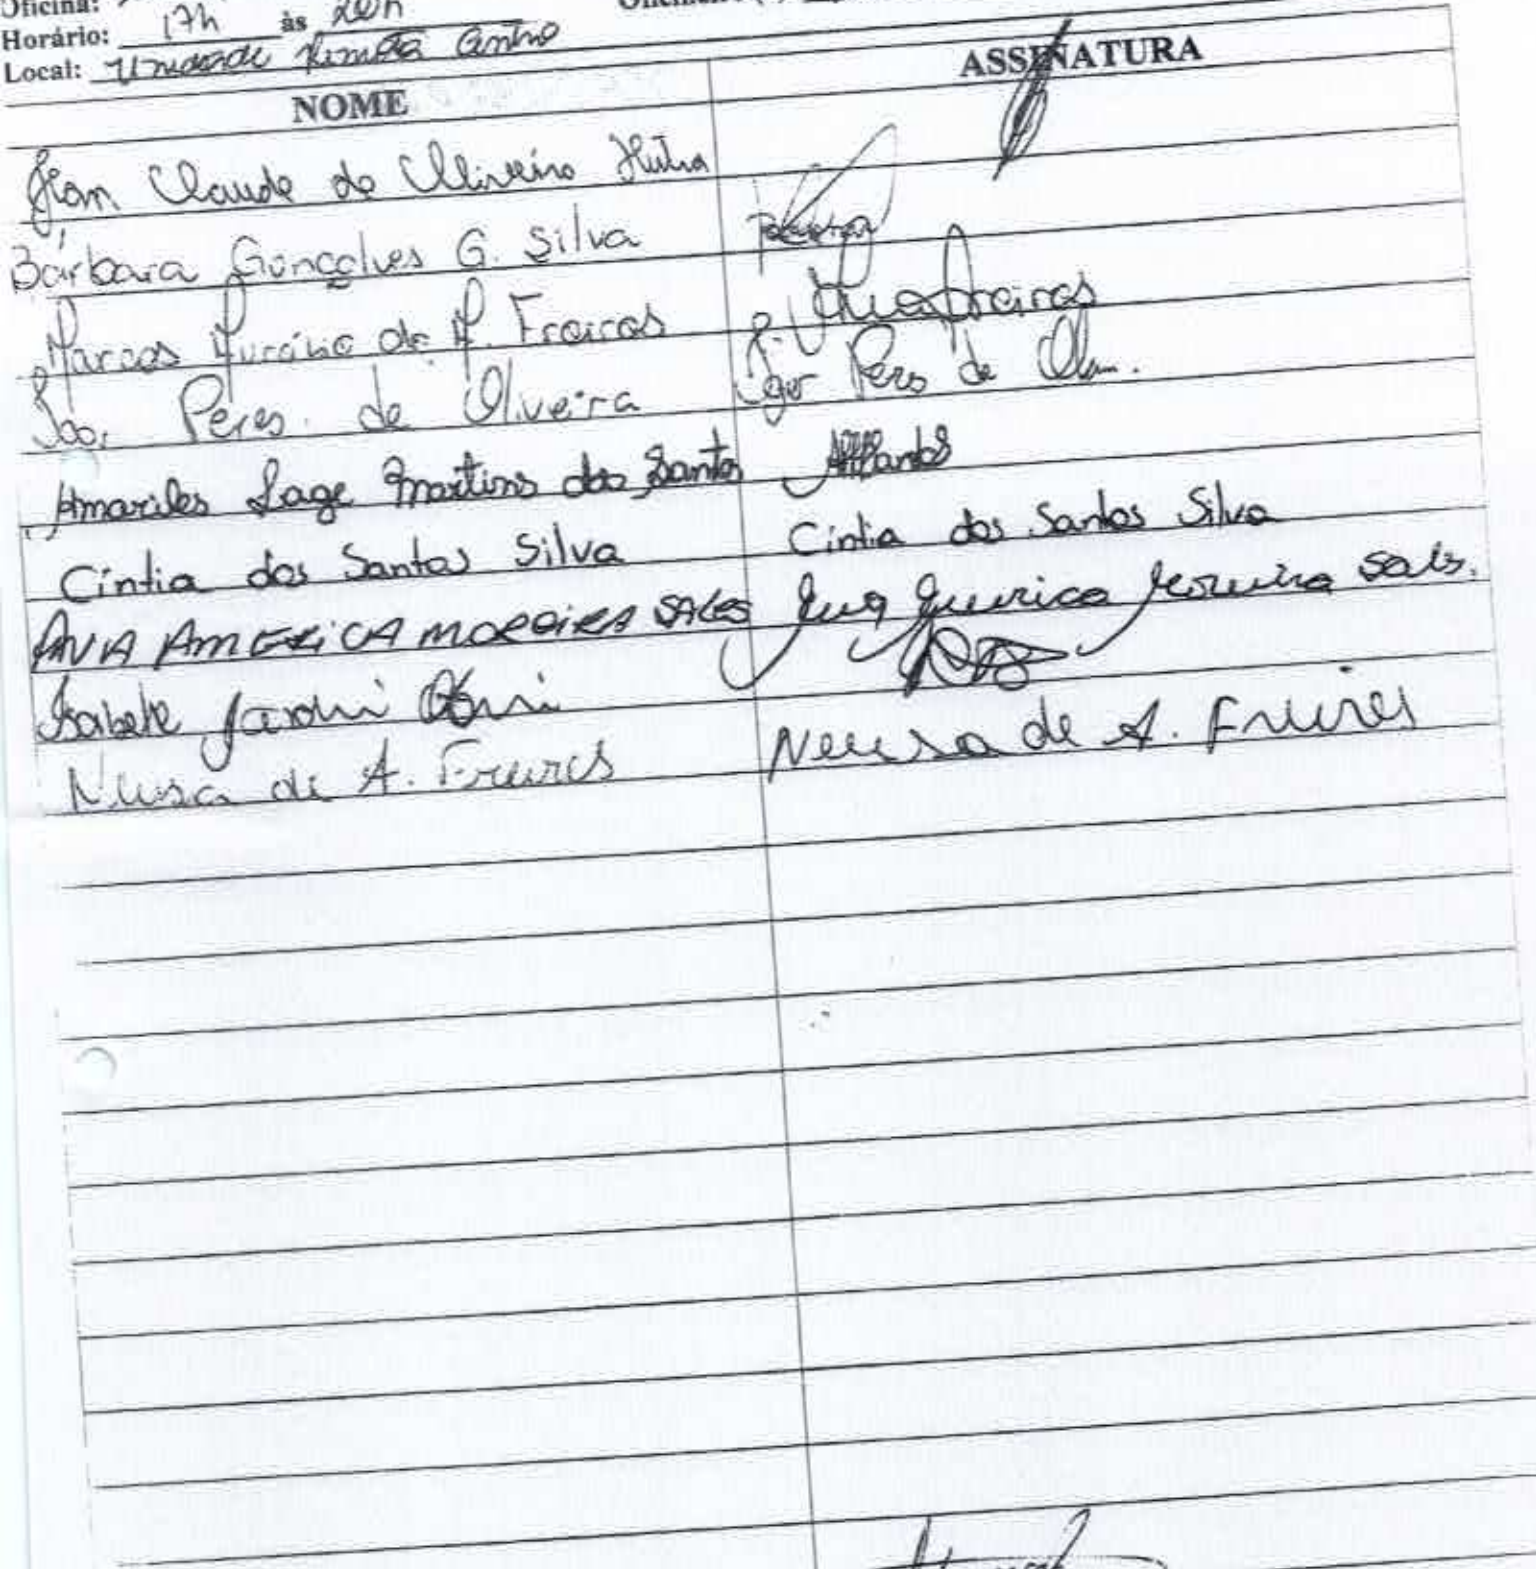 Oficina:
Horário: 17h às 20h
Local: Unidade Remota Centro
NOME ASSINATURA
Jean Claude de Oliveira
Bárbara Gonçalves G. Silva
Marcos de A. Freires
Peres de Oliveira Igor Peres de
Amariles Lage Martins dos Santos
Cíntia dos Santos Silva Cíntia dos Santos Silva
ANA AMERICA MOREIRA SALES Ana America Moreira Sales.
Isabete
Neusa de A. Freires Neusa de A. Freires